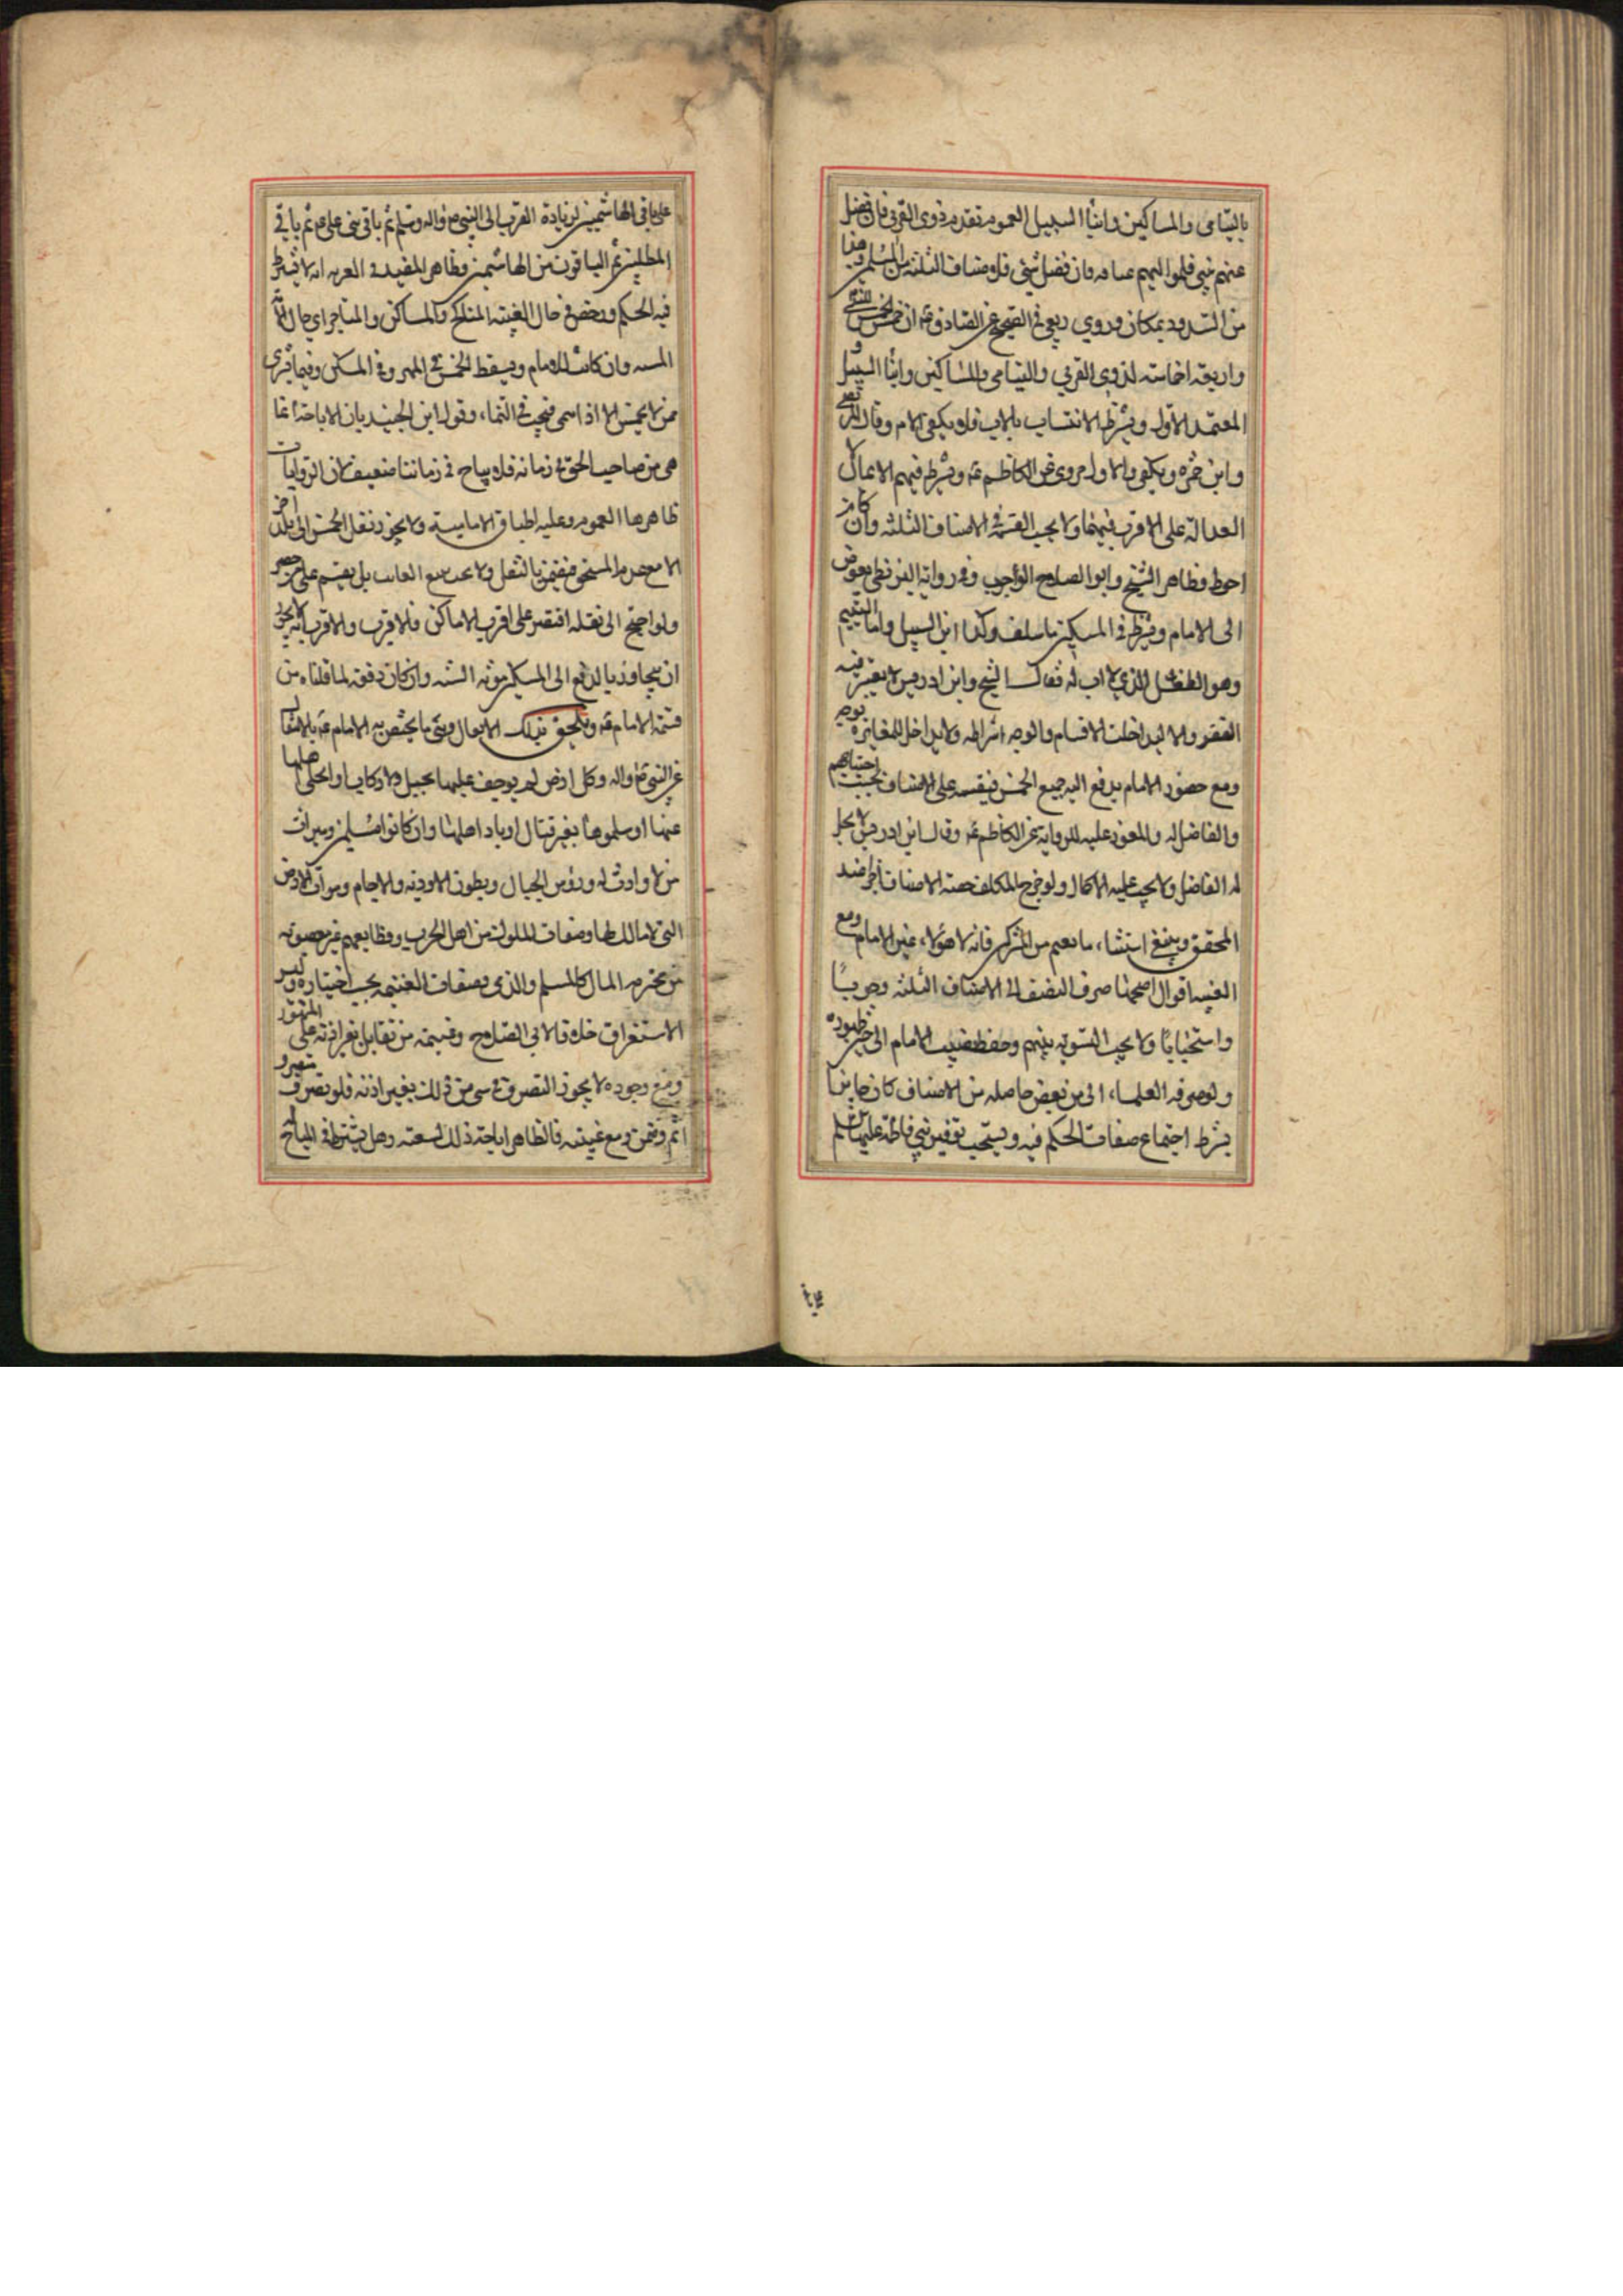 باليتامى والمساكين وابنا السبيل العموم تقدم ذوي القربى فان فضل
عنهم شي فلموا اليهم عامه فان فضل شي فلاصناف الثلثة من المسلمين
من السدود بمكان وروي ربعي في الصحيح عن الصادق ع ان خمس الخمس
واربعة اخماسه لذوى القربي واليتامى والمساكين وابنا السبيل و
المعتمد الاول ويشترط الانتساب بالاب فلا يكفي الام وقال المرتضى
وابن حمزه ويكفي والاول مروي عن الكاظم ع ويشترط فيهم الايمان لا
العدالة على الاقرب فيهما ولا يجب القسمة في الاصناف الثلثه وان كان
احوط وظاهر الشيخ وابو الصلاح الوجوب وفي رواية البزنطي يفوض
الى الامام ويشترط في المسكين ما سلف وكذا ابن السبيل واما اليتيم
وهو الطفل الذي لا اب له فقال الشيخ وابن ادريس لا يعتبر فيه
الفقر والا لتداخلت الاقسام والوجه اشتراطه ولا تداخل للمغايرة بوجه
ومع حضور الامام يدفع اليه جميع الخمس فيقسمه على الاصناف بحسب احتياجهم
والفاضل له والمعوز عليه للرواية عن الكاظم ع وقال ابن ادريس لا يحل
له الفاضل ولا يجب عليه الاكمال ولو فرق المكلف حصة الاصناف اجزا عند
المحقق وينبغي استثناء ما نعم من الشركه فانه لا هولاء غير الامام ومع
الغيبه اقوال اصحها صرف النصف الى الاصناف الثلثه وجوبًا
او استحبابًا ولا يجب التسوية بينهم وحفظ نصيب الامام الى حين ظهوره
ولو صرفه العلماء الى من يعوز حاصله من الاصناف كان جايزا
بشرط اجتماع صفات الحكم فيه ويستحب توفير بني فاطمة عليها السلم
على باقي الهاشميين لزيادة القرب الى النبي ص واله وسلم ثم باقي بني علي ع ثم باقي
المطلبين ثم الباقون من الهاشمين وظاهر المفيد في العريه انه لا يشترط
فيه الحكم ورخص في حال الغيبة المناكح والمساكن والمتاجر اي حال
وان كانت للامام ويسقط الخمس في المهر وفي المسكن وفيما يشترى
ممن لا يخمس الا اذا نمى فيجب في النماء، وقول ابن الجنيد بان الاباحة انما
هي من صاحب الحق في زمانه فلا يباح في زماننا ضعيف لان الروايات
ظاهرها العموم وعليه اطباق الامامية ولا يجوز نقل الخمس الى بلد اخر
الا مع عدم المستحق فيضمن بالنقل ولا يجب تتبع الغايب بل يقسم على من حضر
ولو احتيج الى نقله اقتصر على اقرب الاماكن فالاقرب والاقرب انه لا يجوز
ان يتجاوز بالدفع الى المسكين مونه السنه وان كان دفعه لما قلناه من
قسمة الامام ع ويلحق بذلك الانفال وهي ما يختص به الامام ع بالانتقال
عن النبي ص واله وكل ارض لم يوجف عليها بخيل ولا ركاب او انجلى اهلها
عنها او سلموها بغير قتال او باد اهلها وان كانوا مسلمين وميراث
من لا وارث له ورؤس الجبال وبطون الاودية والاجام وموات الارض
التي لا مالك لها وصفايا الملوك من اهل الحرب وقطايعهم غير مغصوبه
من محترم المال كالمسلم والذمي وصفايا الغنيمه بحسب اختياره وليس
الاستغراق خلافا لابي الصلاح وغنيمة من تقاتل بغير اذنه على المشهور
ومع وجوده لا يجوز التصرف في شي من ذلك بغير اذنه فلو تصرف متصرف
اثم وضمن ومع غيبته فالظاهر اباحة ذلك لشيعته وهل يشترط في المباح